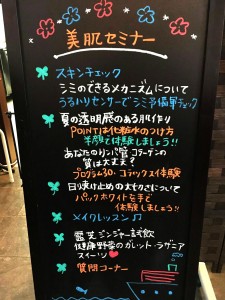 美肌セミナー
スキンチェック
シミのできるメカニズムについて
うるハリセンサーでシミ予備軍チェック
夏の透明感のある肌作り
POINTは化粧水のつけ方
半顔で体験しましょう!!
あなたのリンパ管 コラーゲンの
質は大丈夫?
プログラム30・コラックス体験
日り焼け止めの大切さについて
パックホワイトを手で
体験しましょう!!
メイクレッスン♫
霊芝ジンジャー試飲
健康野菜のガレット・ラザニア
スイーツ♥
質問コーナー